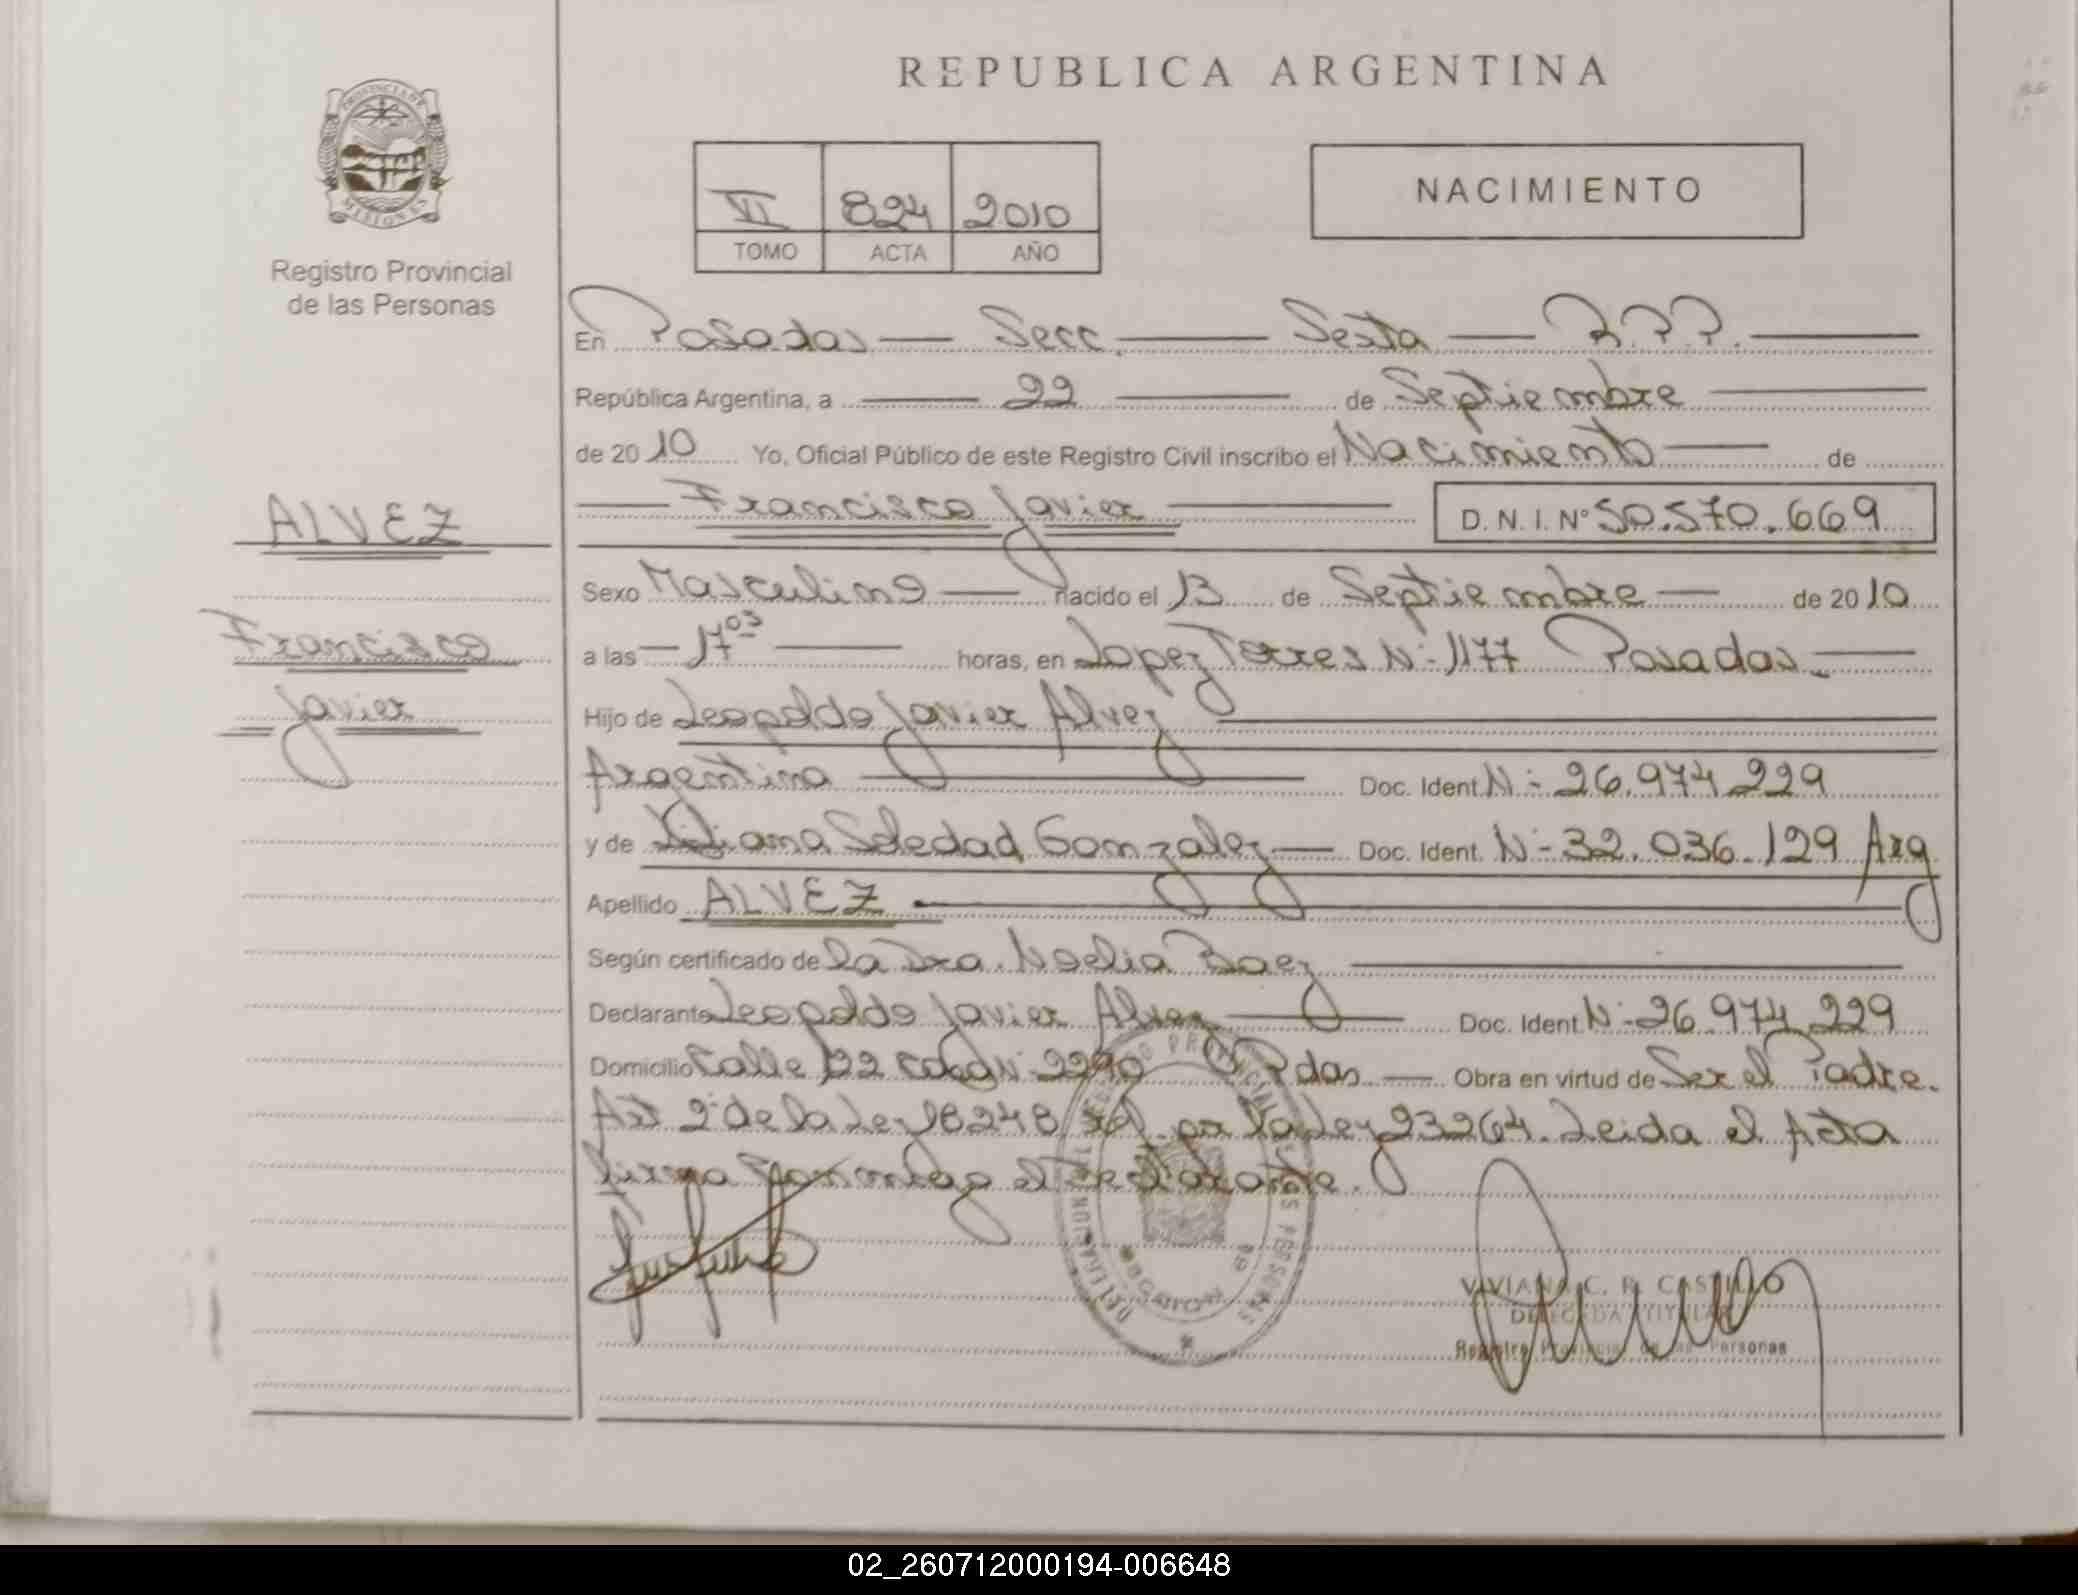 REPUBLICA ARGENTINA
PROVINCIA DE
MISIONES
Registro Provincial
de las Personas
VI 824 2010
TOMO ACTA AÑO
NACIMIENTO
En Posadas — Secc. — Sexta — R.P.P. —
República Argentina, a — 22 — de Septiembre —
de 2010 Yo, Oficial Público de este Registro Civil inscribo el Nacimiento — de
— Francisco Javier — D. N. I. N° 50.570.669
ALVEZ
Francisco
Javier
Sexo Masculino — nacido el 13 de Septiembre — de 2010
a las — 17 03 — horas, en Lopez Torres N° 1177 Posadas —
Hijo de Leopoldo Javier Alvez —
Argentina — Doc. Ident. N° 26.974.229
y de Liliana Soledad Gonzalez — Doc. Ident. N° 32.036.129 Arg
Apellido ALVEZ —
Según certificado de la Dra. Noelia Baez —
Declarante Leopoldo Javier Alvez — Doc. Ident N° 26.974.229
Domicilio Calle 122 2290 Pdas — Obra en virtud de Ser el Padre.
Art 2° de la Ley 18248 por la Ley 23264. Leida el Acta
firma conmigo el declarante.
VIVIANA C. R. CASTILLO
DELEGADA TITULAR
Registro Provincial de las Personas
02_260712000194-006648